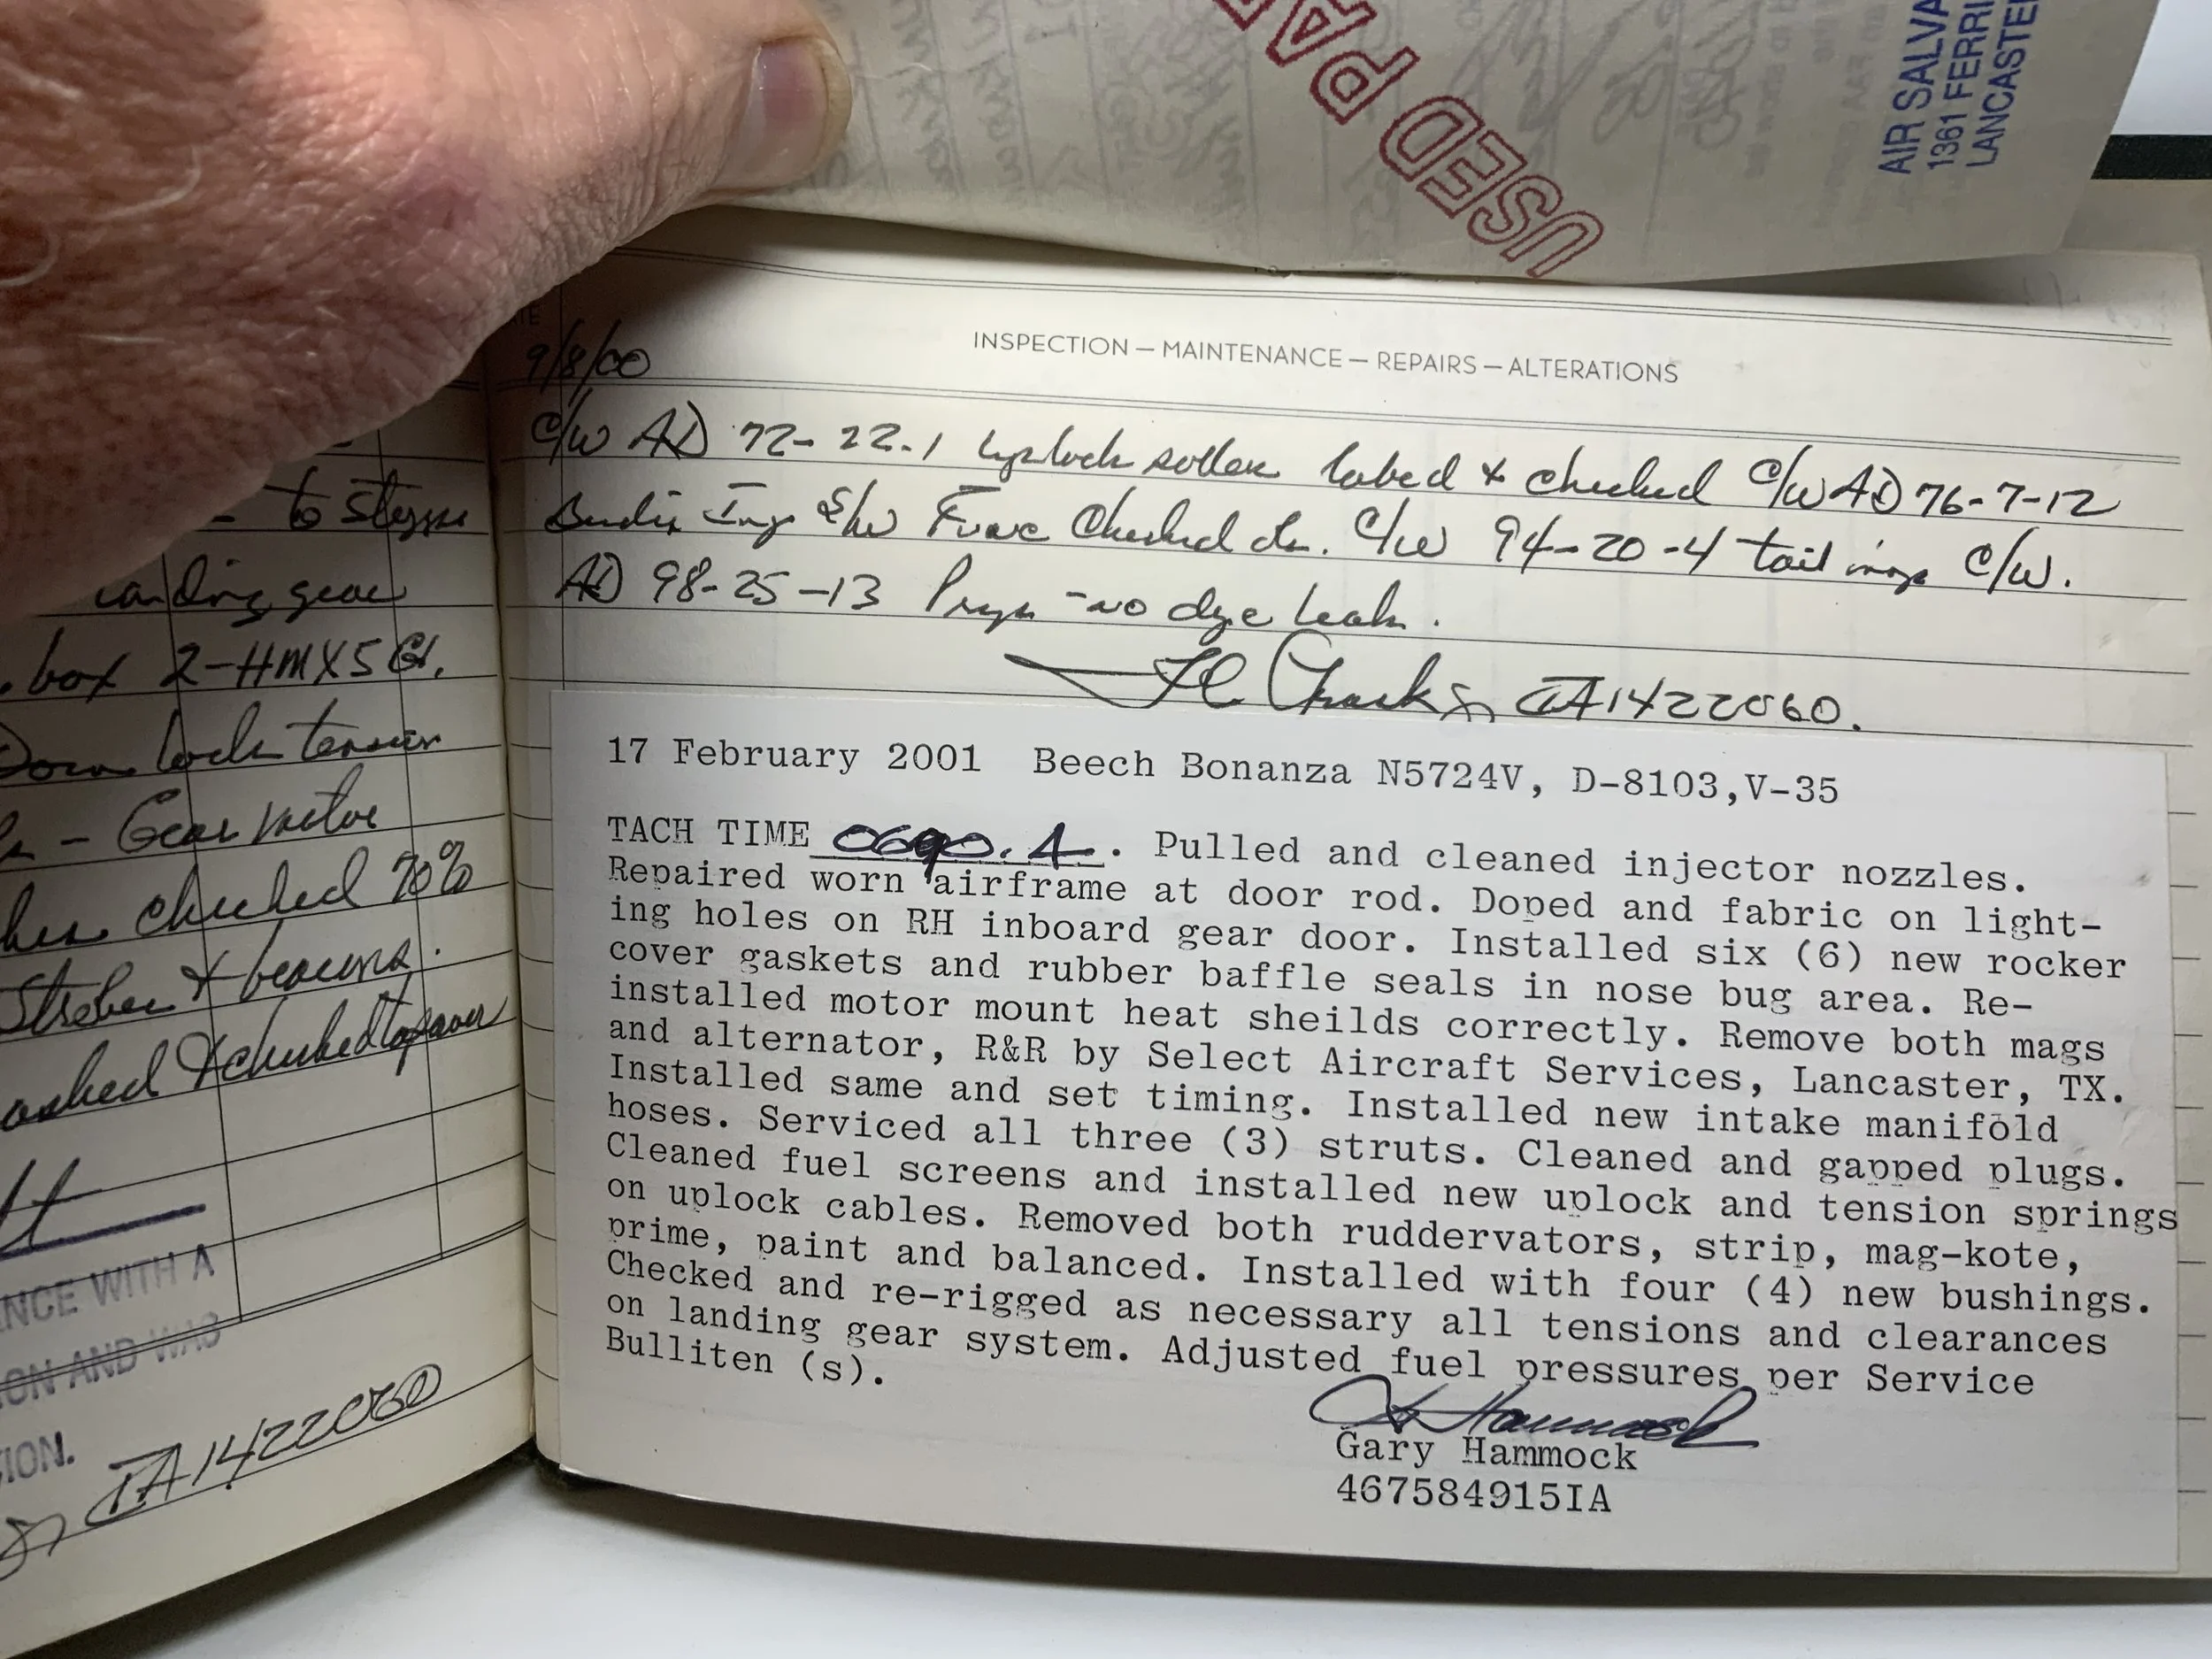 USED PA
AIR SALVA
1361 FERRI
LANCASTE
INSPECTION — MAINTENANCE — REPAIRS — ALTERATIONS
9/8/00
C/W AD 72-22-1 uplock roller lubed & checked C/W AD 76-7-12
Bendix Ing S/W Func Checked ok. C/W 94-20-4 tail insp C/W.
AD 98-25-13 - no dye leak.
IA1422060.
17 February 2001 Beech Bonanza N5724V, D-8103,V-35
TACH TIME 0690.4. Pulled and cleaned injector nozzles.
Repaired worn airframe at door rod. Doped and fabric on light-
ing holes on RH inboard gear door. Installed six (6) new rocker
cover gaskets and rubber baffle seals in nose bug area. Re-
installed motor mount heat sheilds correctly. Remove both mags
and alternator, R&R by Select Aircraft Services, Lancaster, TX.
Installed same and set timing. Installed new intake manifold
hoses. Serviced all three (3) struts. Cleaned and gapped plugs.
Cleaned fuel screens and installed new uplock and tension springs
on uplock cables. Removed both ruddervators, strip, mag-kote,
prime, paint and balanced. Installed with four (4) new bushings.
Checked and re-rigged as necessary all tensions and clearances
on landing gear system. Adjusted fuel pressures per Service
Bulliten (s).
Gary Hammock
467584915IA
to
landing gear
box 2-HMX5
Down lock tension
- Gear motor
checked 70%
Strobes & beacons.
& checked
NCE WITH A
ION AND WAS
ION.
IA1422060